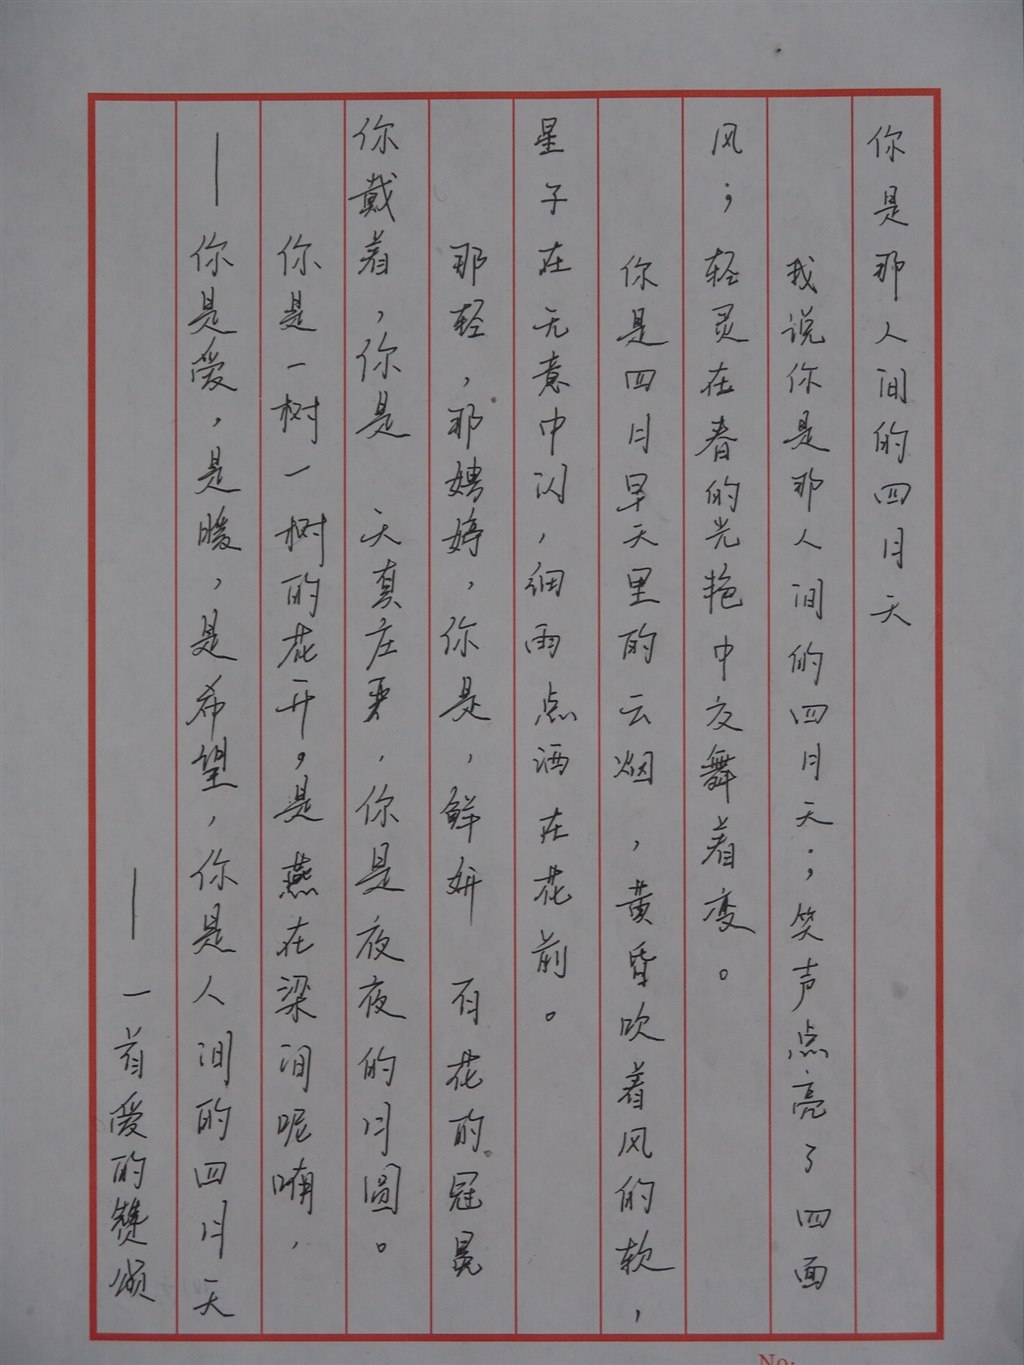 你是那人间的四月天
我说你是那人间的四月天；笑声点亮了四面
风；轻灵在春的光艳中交舞着变。
你是四月早天里的云烟，黄昏吹着风的软，
星子在无意中闪，细雨点洒在花前。
那轻，那娉婷，你是，鲜妍 百花的冠冕
你戴着，你是 天真庄严，你是夜夜的月圆。
你是一树一树的花开。是 燕在梁间呢喃，
——你是爱，是暖，是希望，你是人间的四月天
——一首爱的赞颂
No: